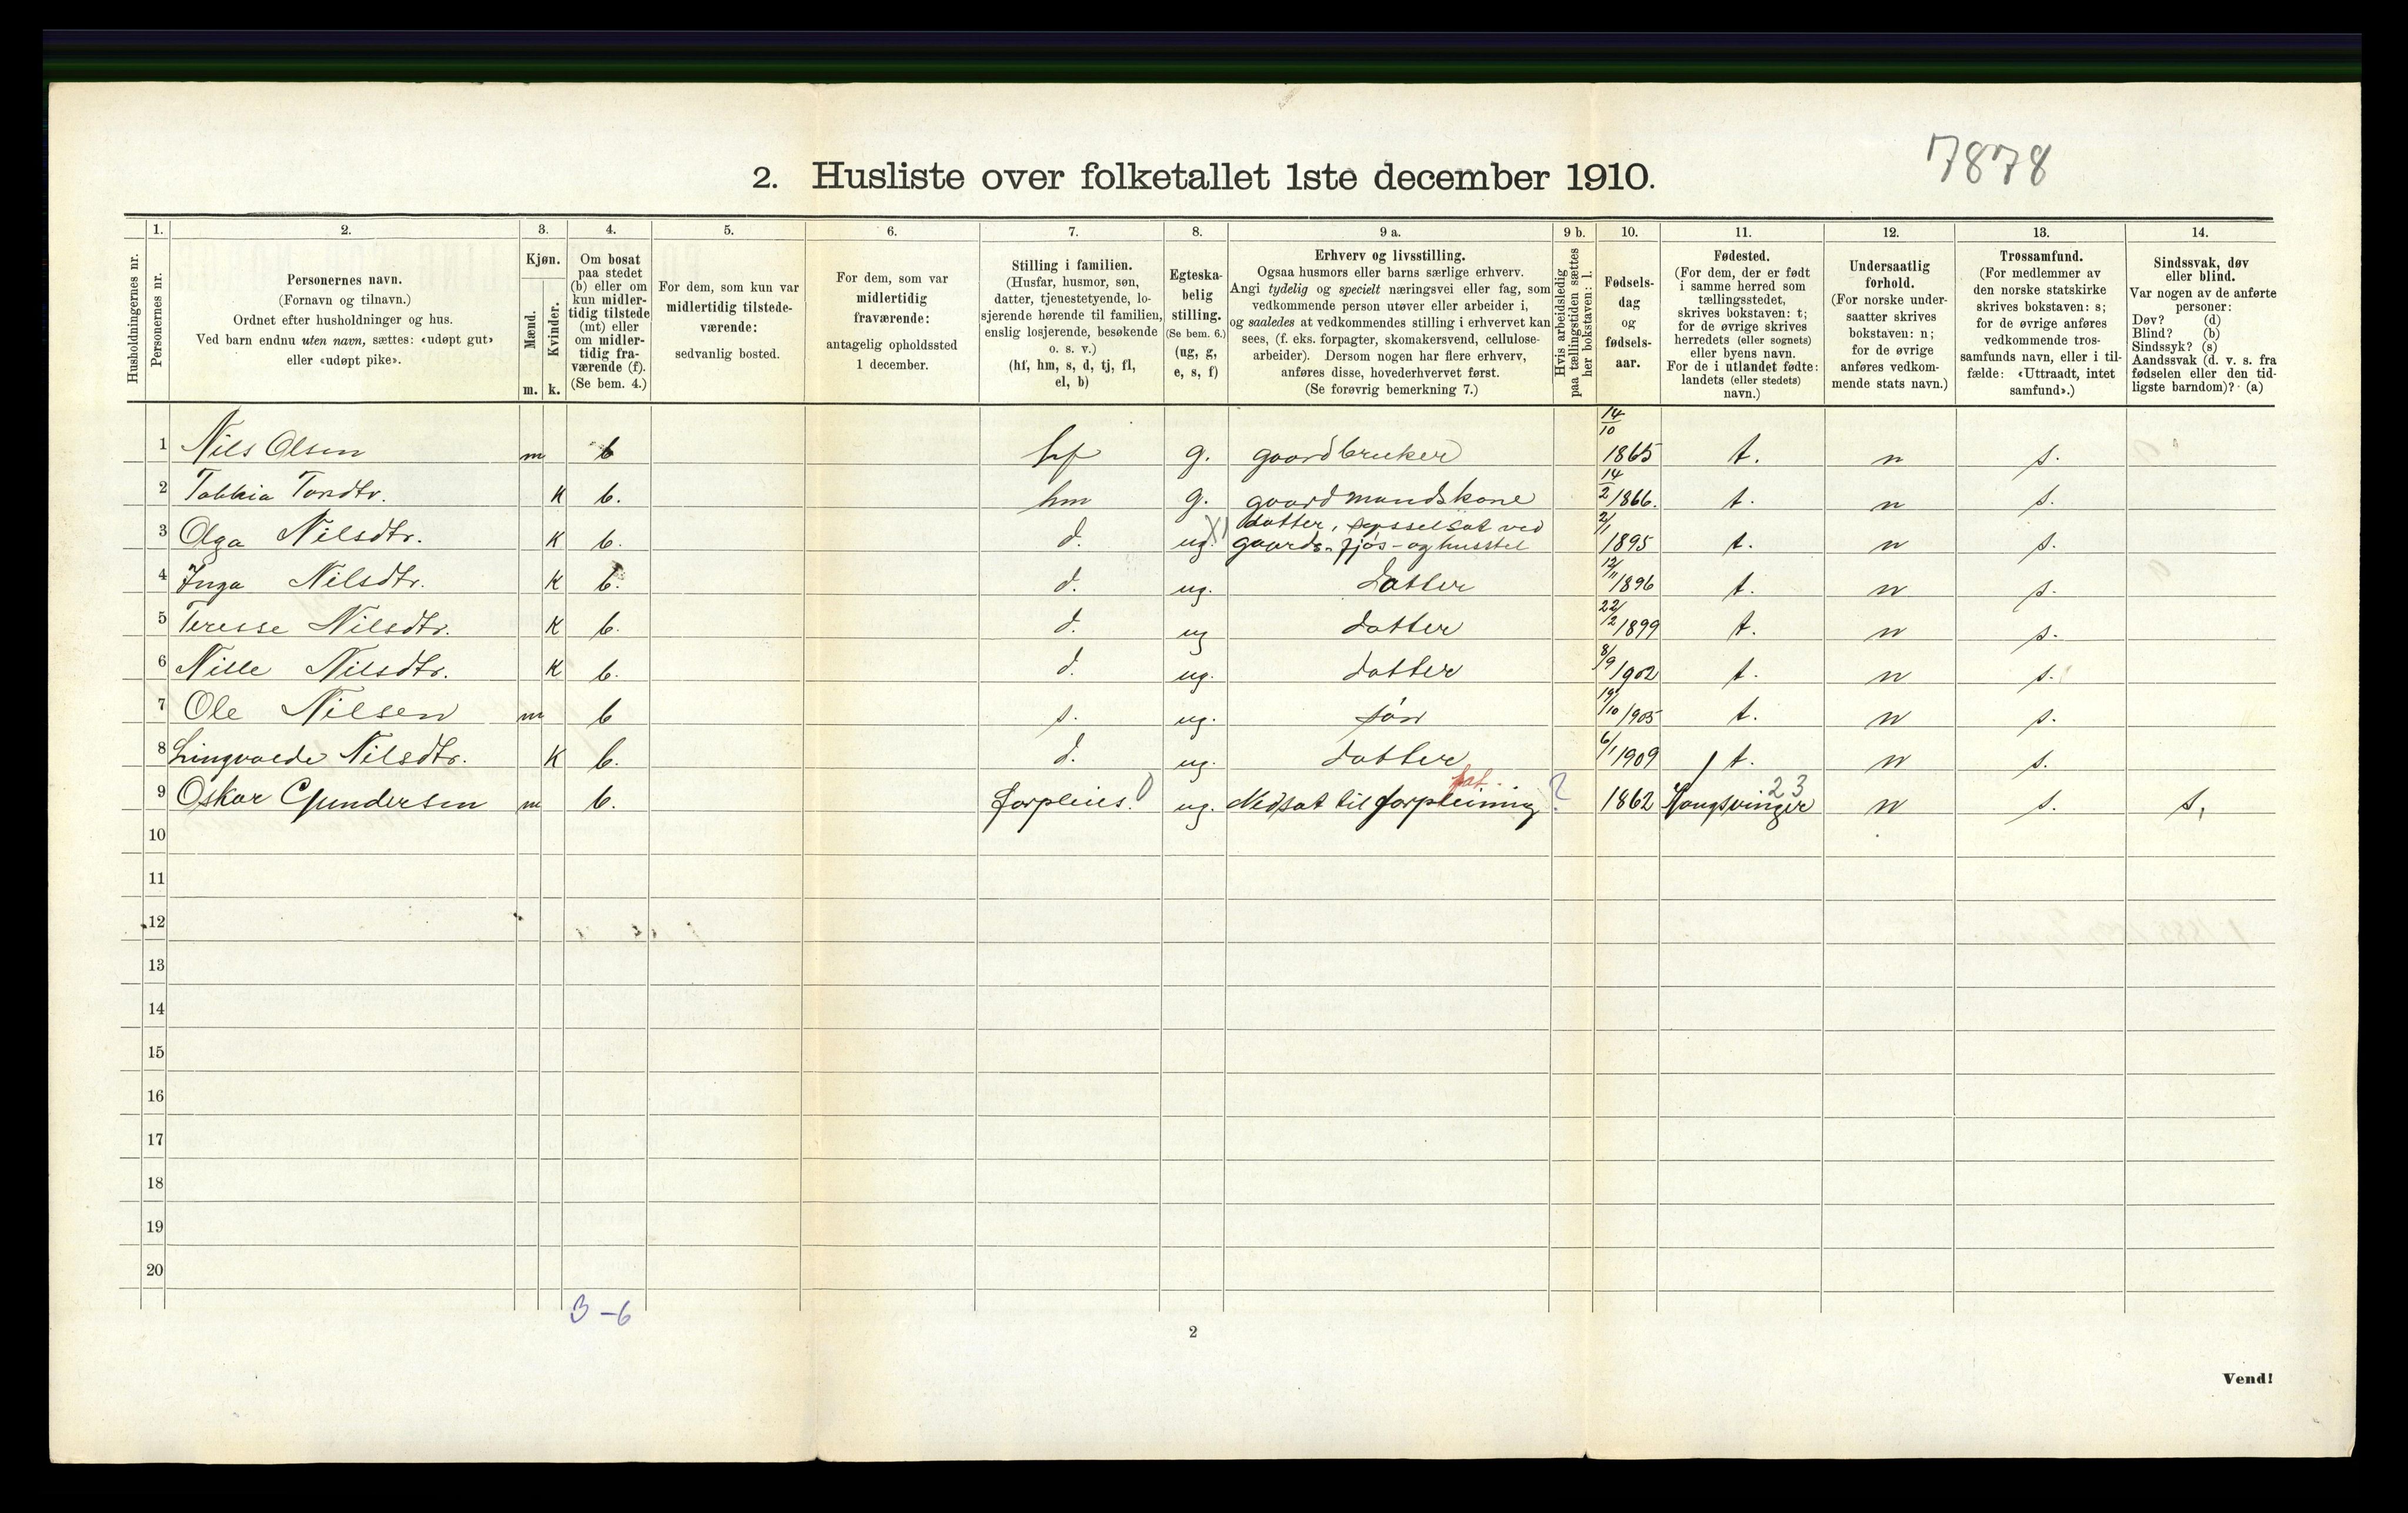 7878
2. Husliste over folketallet 1ste december 1910.
Husholdningernes nr.
1.
Personernes nr.
2.
Personernes navn.
(Fornavn og tilnavn.)
Ordnet efter husholdninger og hus.
Ved barn endnu uten navn, sættes: «udøpt gut»
eller «udøpt pike».
3.
Kjøn.
Mænd.
Kvinder.
m. k.
4.
Om bosat
paa stedet
(b) eller om
kun midler-
tidig tilstede
(mt) eller
om midler-
tidig fra-
værende (f).
(Se bem. 4.)
5.
For dem, som kun var
midlertidig tilstede-
værende:
sedvanlig bosted.
6.
For dem, som var
midlertidig
fraværende:
antagelig opholdssted
1 december.
7.
Stilling i familien.
(Husfar, husmor, søn,
datter, tjenestetyende, lo-
sjerende hørende til familien,
enslig losjerende, besøkende
o. s. v.)
(hf, hm, s, d, tj, fl,
el, b)
8.
Egteska-
belig
stilling.
(Se bem. 6.)
(ug, g,
e, s, f)
9 a.
Erhverv og livsstilling.
Ogsaa husmors eller barns særlige erhverv.
Angi tydelig og specielt næringsvei eller fag, som
vedkommende person utøver eller arbeider i,
og saaledes at vedkommendes stilling i erhvervet kan
sees, (f. eks. forpagter, skomakersvend, cellulose-
arbeider). Dersom nogen har flere erhverv,
anføres disse, hovederhvervet først.
(Se forøvrig bemerkning 7.)
9 b.
Hvis arbeidsledig
paa tællingstiden sættes
her bokstaven: l.
10.
Fødsels-
dag
og
fødsels-
aar.
11.
Fødested.
(For dem, der er født
i samme herred som
tællingsstedet,
skrives bokstaven: t;
for de øvrige skrives
herredets (eller sognets)
eller byens navn.
For de i utlandet fødte:
landets (eller stedets)
navn.)
12.
Undersaatlig
forhold.
(For norske under-
saatter skrives
bokstaven: n;
for de øvrige
anføres vedkom-
mende stats navn.)
13.
Trossamfund.
(For medlemmer av
den norske statskirke
skrives bokstaven: s;
for de øvrige anføres
vedkommende tros-
samfunds navn, eller i til-
fælde: «Uttraadt, intet
samfund».)
14.
Sindssvak, døv
eller blind.
Var nogen av de anførte
personer:
Døv? (d)
Blind? (b)
Sindssyk? (s)
Aandssvak (d. v. s. fra
fødselen eller den tid-
ligste barndom)? (a)
1 Nils Olsen m b hf g. gaardbruker 14/10 1865 t. n s.
2 Tobbia Tordtr. K b. hm g. gaardmandskone 14/2 1866. t. n s.
3 Olga Nilsdtr. K b. d. ug. datter, sysselsat ved
gaards-fjøs-og husstel 2/1 1895 t. n s.
4 Inga Nilsdtr. K b. d. ug. Datter 12/11 1896 t. n s.
5 Teresse Nilsdtr. K b. d. ug datter 22/2 1899 t. n s.
6 Nille Nilsdtr. K b. d. ug. datter 8/9 1902 t. n s.
7 Ole Nilsen m b s. ug. søn 19/10 1905 t. n s.
8 Lingvalde Nilsdtr. K b. d. ug. datter 6/1 1909 t. n s.
9 Oskar Gundersen m b. forpleies. 0 ug. Nedsat til forpleining ? 1862 Kongsvinger 23 n s. s.
10
11
12
13
14
15
16
17
18
19
20
3-6
2
Vend!